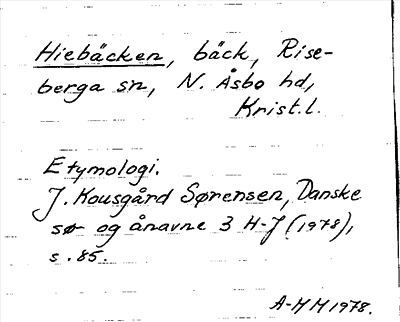 Hiebäcken, bäck, Rise-
berga sn, N. Åsbo hd,
Krist.l.
Etymologi.
J. Kousgård Sørensen, Danske
sø- og ånavne 3 H-J (1978),
s. 85.
A-MM 1978.